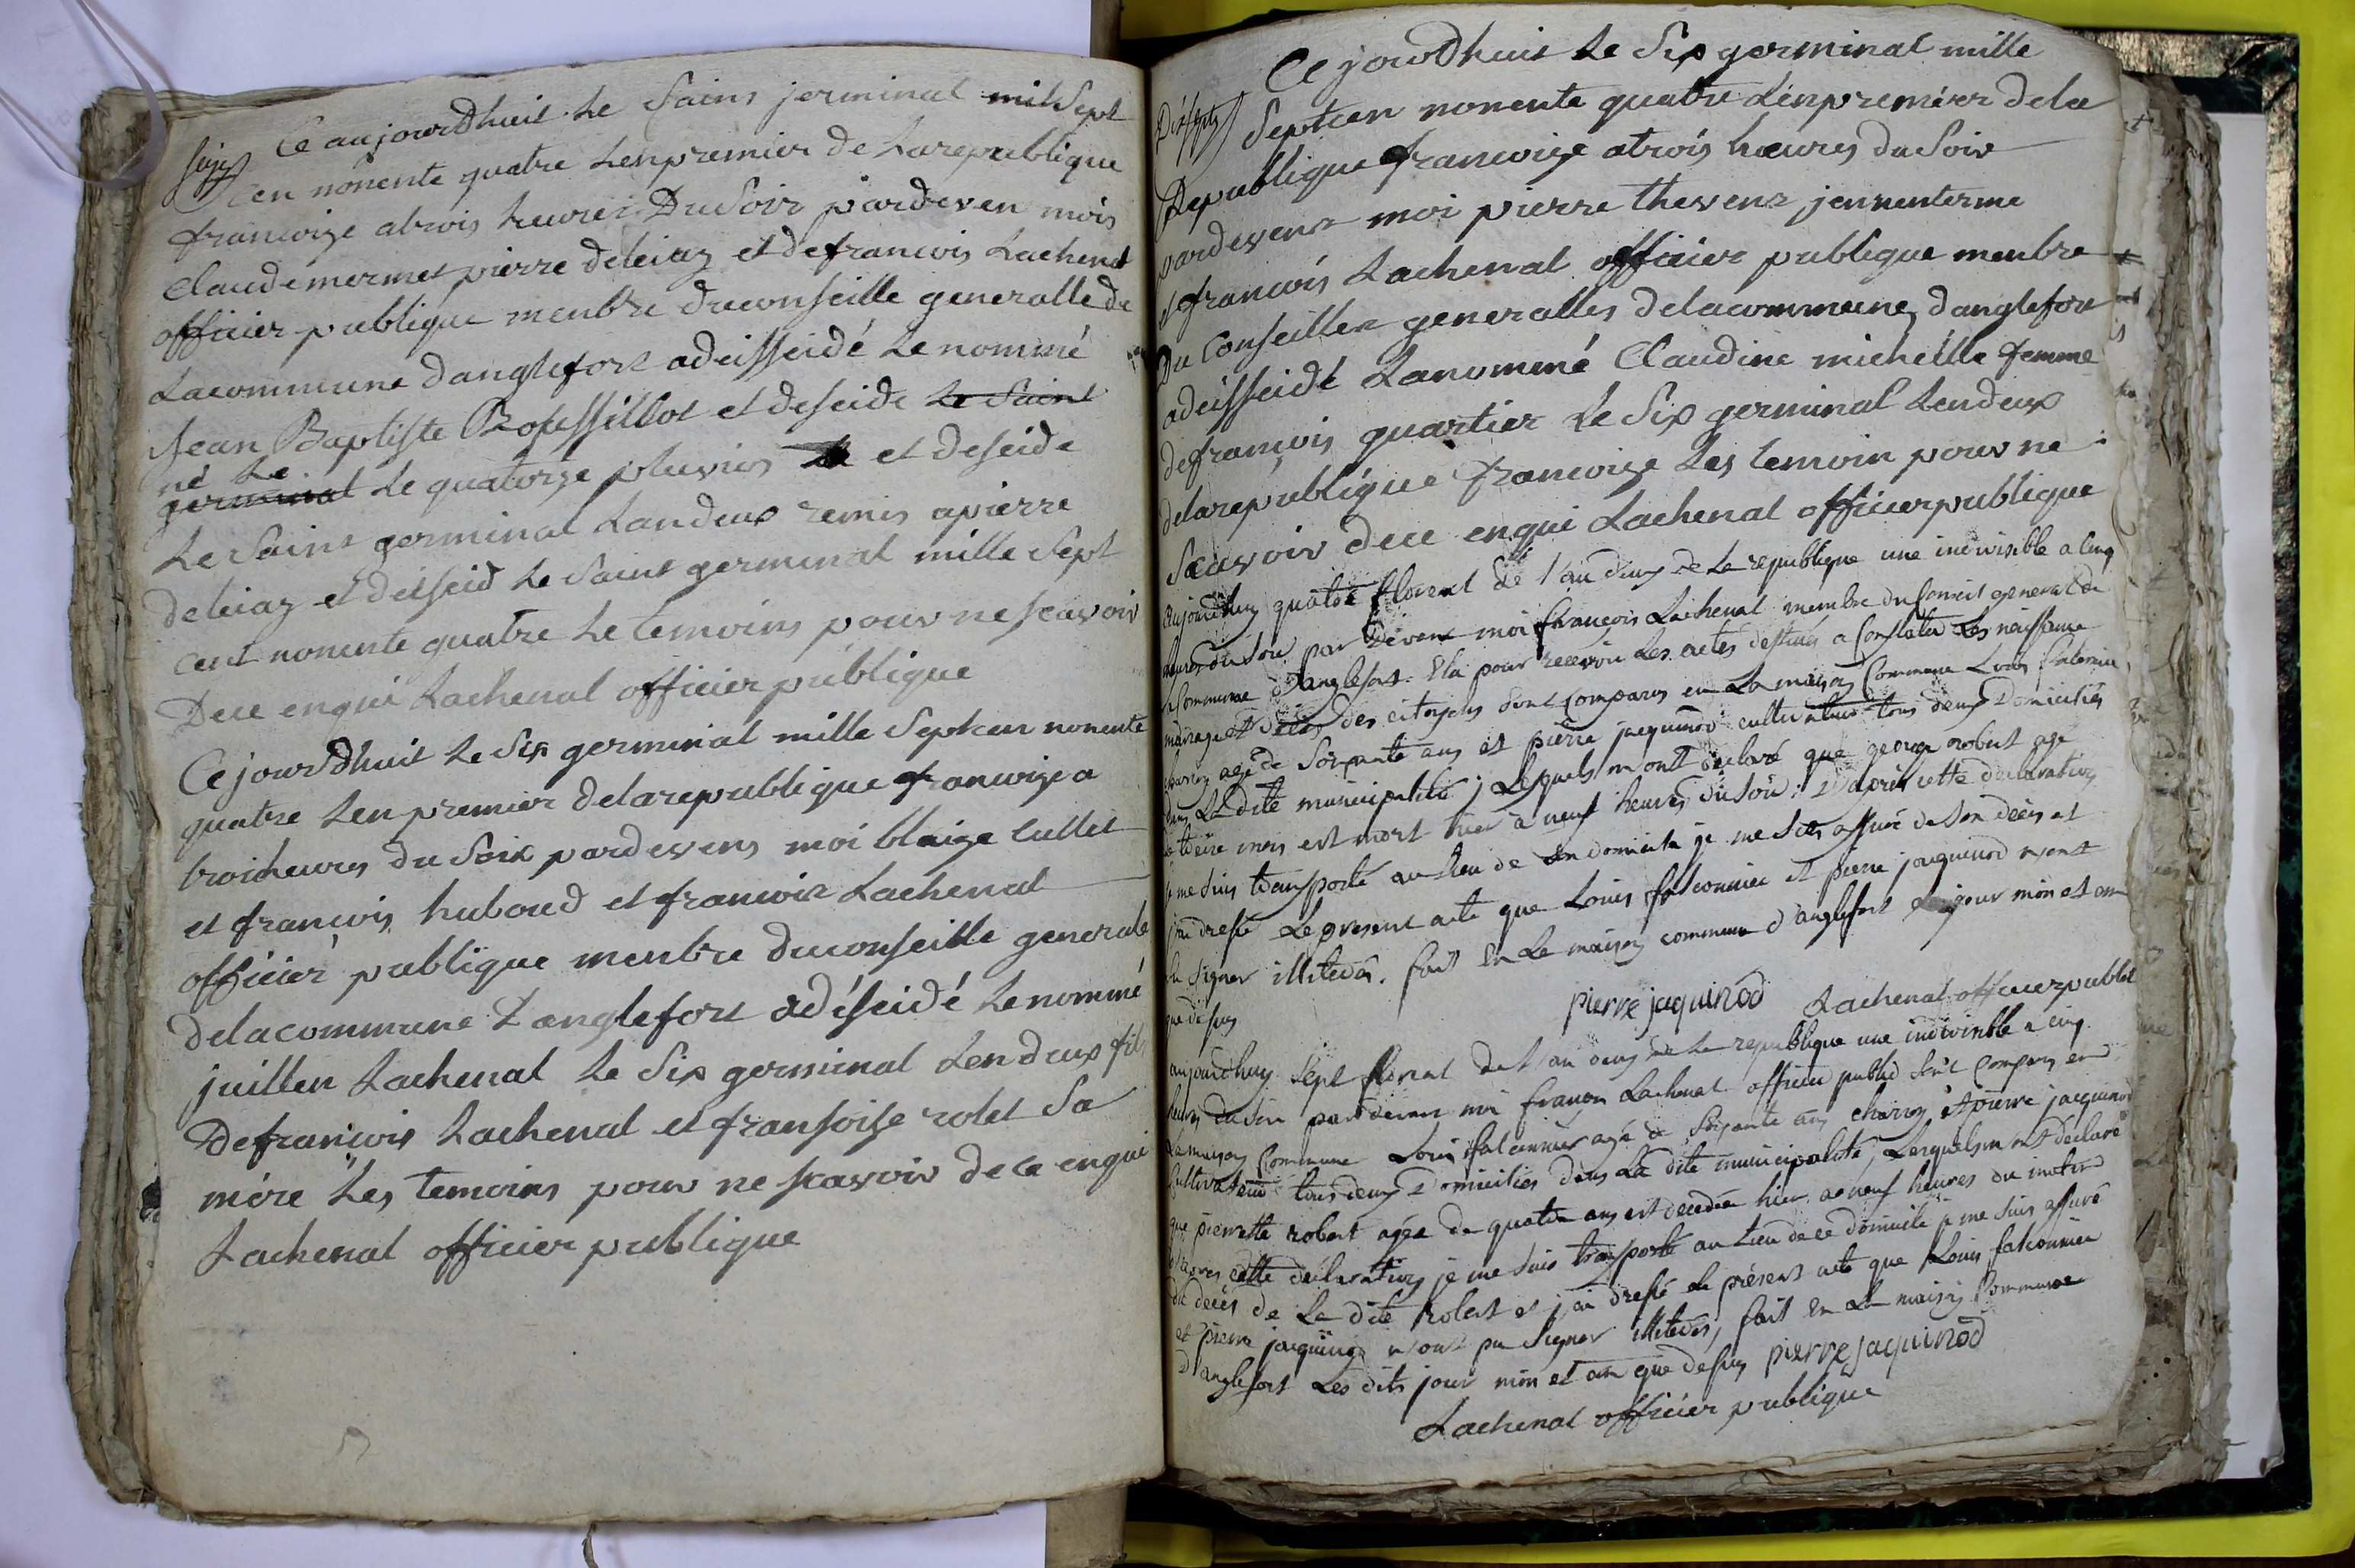 Ce aujourdhuit Le Sains jerminal mil Sept
seize
cen nonente quatre Lenpremier de Larepublique
francoize atrois heures DuSoir pardeven mois
Claudemermet pierre deleiaz et defrancois Lachenal
officier publique menbre duconseille generalle de
Lacommeune danglefort adeisseidé Le nommé
Jean Baptiste Bofessillot et deseide Le Saint
né Le
germinal Le quatorze pluvios et deseide
Le Saint germinal Landeux remis apierre
deleiaz et deiseid Le Saint germinal mille Sept
cent nonente quatre Le temoins pour ne scavoir
Dece enqui Lachenal officier publique
Ce jourdhuit Le Six germinal mille Septcen nonente
quatre Len premier delarepublique francoize a
troicheures du Soir pardevens moi blaize Cullet
et francois huboud et francois Lachenal
officier publique menbre duconseille generale
delacommune danglefort adéseidé Le nommé
juillen Lachenal Le Six germinal Lendeux fils
Defrancois Lachenal et fransoise rolet Sa
mére Les temoins pour ne scavoir de ce enqui
Lachenal officier publique
Ce jourdhuit Le Six germinal mille
Dixsept
Septcen nonente quatre Lenpremier dela
Republique francoize atrois heures du Soir
pardevens moi pierre thevenz jennenterme
et francois Lachenal officier publique menbre
Du Conseiller generalles delacommeune danglefort
adeisseidé Lanommé Claudine micheille femme
defrançois quartier Le Six germinal Lendeux
delarepublique francoize Les temoin pour ne
Scavoir dece enqui Lachenal officierpublique
aujourdhuy quatre floreal de l'an deux de La republique une indivisible a Cinq
heures du soir par devant moi françois Lachenal membre du Conseil general de
la Commune d'anglefort. Elu pour recevoir Les actes destinés a Constater Les naissance
mariage et décès des citoyens sont comparus en La maison Commune Louis falconier
charron agé de Soixante ans et pierre jaquinod cultivateur tous deux Domiciliés
dans La dite municipalité; Lesquels m'ont déclaré que george robert age
mois est mort hier à neuf heures du soir. D'après cette déclaration
je me suis transporté au lieu de son domicile je me suis assuré de son décès et
j'ai dressé Le present acte que Louis falconnier et pierre jacquinod n'ont
pu signer illiterés. fait En La maison commune d'anglefort jour mois et an
que dessus
pierre jaquinod Lachenal officierpublic
aujourdhuy sept floreal de l'an deux de La republique une indivisible a cinq
heures du soir pardevant moi françois Lachenal officier public sont comparus en
La maison Commune Louis falconnier agé de Soixante ans charron et pierre jacquinod
Cultivateur tous deux Domiciliés dans La dite municipalité, Lesquels m'ont déclaré
que pierrette robert agée de quatre ans est decedée hier a neuf heures du matin
d'apres cette declaration je me suis transporté au Lieu de ce domicile je me suis assuré
du decès de La dite Robert et j'ai dressé Le présent acte que Louis falconnier
et pierre jacquinod n'ont pu signer illiterés, fait En La maison Commune
D'anglefort Les dits jour mois et an que dessus pierre jaquinod
Lachenal officier publique